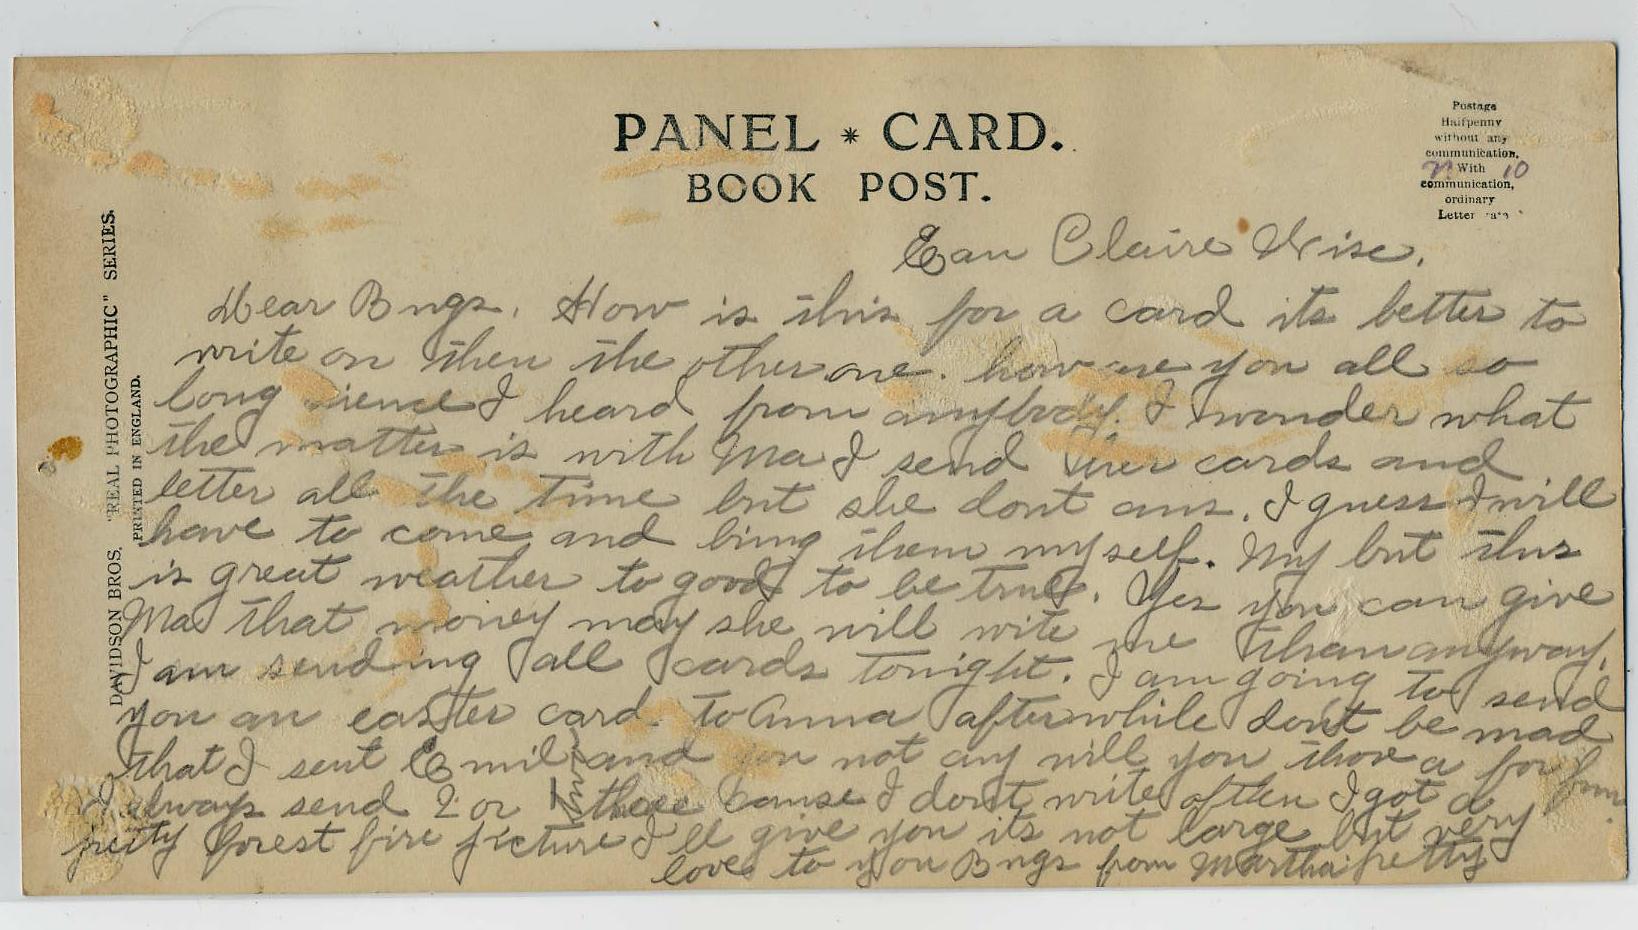 PANEL * CARD.
BOOK POST.
Postage
Halfpenny
without any
communication.
With 10
communication,
ordinary
Letter rate
DAVIDSON BROS. "REAL PHOTOGRAPHIC" SERIES.
PRINTED IN ENGLAND.
Eau Claire Wisc.
Dear Bngs. How is this for a card its better to
write on then the other one. how are you all so
long sience I heard from anybody. I wonder what
the matter is with Ma I send her cards and
letter all the time but she dont ans. I guess I will
have to come and bing them myself. My but this
is great weather to good to be true. Yes you can give
Ma that money may she will write me than anyway.
I am sending all cards tonight. I am going to send
you an easter card. to Anna after while don't be mad
that I sent Emil and you not any will you
I always send 2 or these cause I don't write often I got a
prety forest fire picture I ll give you its not large but very
love to you Bngs from Martha pretty